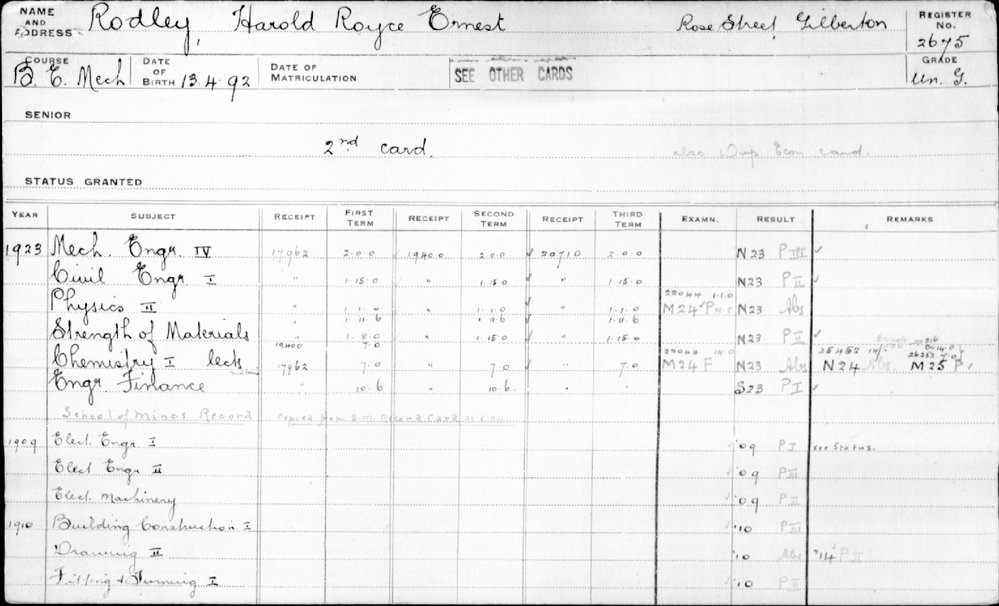 NAME AND ADDRESS Rodley, Harold Royce Ernest Rose Street Gilberton REGISTER No. 2675
COURSE B.E. Mech DATE OF BIRTH 13.4.92 DATE OF MATRICULATION SEE OTHER CARDS GRADE Un. G.
SENIOR
2nd card. also Dip Econ card.
STATUS GRANTED
YEAR SUBJECT RECEIPT FIRST TERM RECEIPT SECOND TERM RECEIPT THIRD TERM EXAMN. RESULT REMARKS
1923 Mech. Engr. IV 17962 2.0.0 19400 2.0.0 20710 2.0.0 N23 P III ✓
Civil Engr I " 1.15.0 " 1.15.0 " 1.15.0 N23 P II ✓
22044 1.1.0
Physics II " 1.1.0 " 1.1.0 " 1.1.0 M24 P N.C N23 Abs
1.11.6 1.11.6 1.11.6
Strength of Materials " 1.8.0 " 1.15.0 " 1.15.0 N23 P II ✓
19400 7.0 22044 14.0 25452 14/- 26252 7.0
Chemistry I lects 17962 7.0 " 7.0 " 7.0 M24 F N23 Abs N24 Abs M25 P ✓
Engr Finance " 10.6 " 10.6 " S23 P I ✓
School of Mines Record Copied from S.M. Record Card
1909 Elect. Engr I '09 P I see Status.
Elect Engr II '09 P III
Elect Machinery '09 P II
1910 Building Construction I '10 P III
Drawing II '10 Abs '14 P II
Fitting & Turning I '10 P II